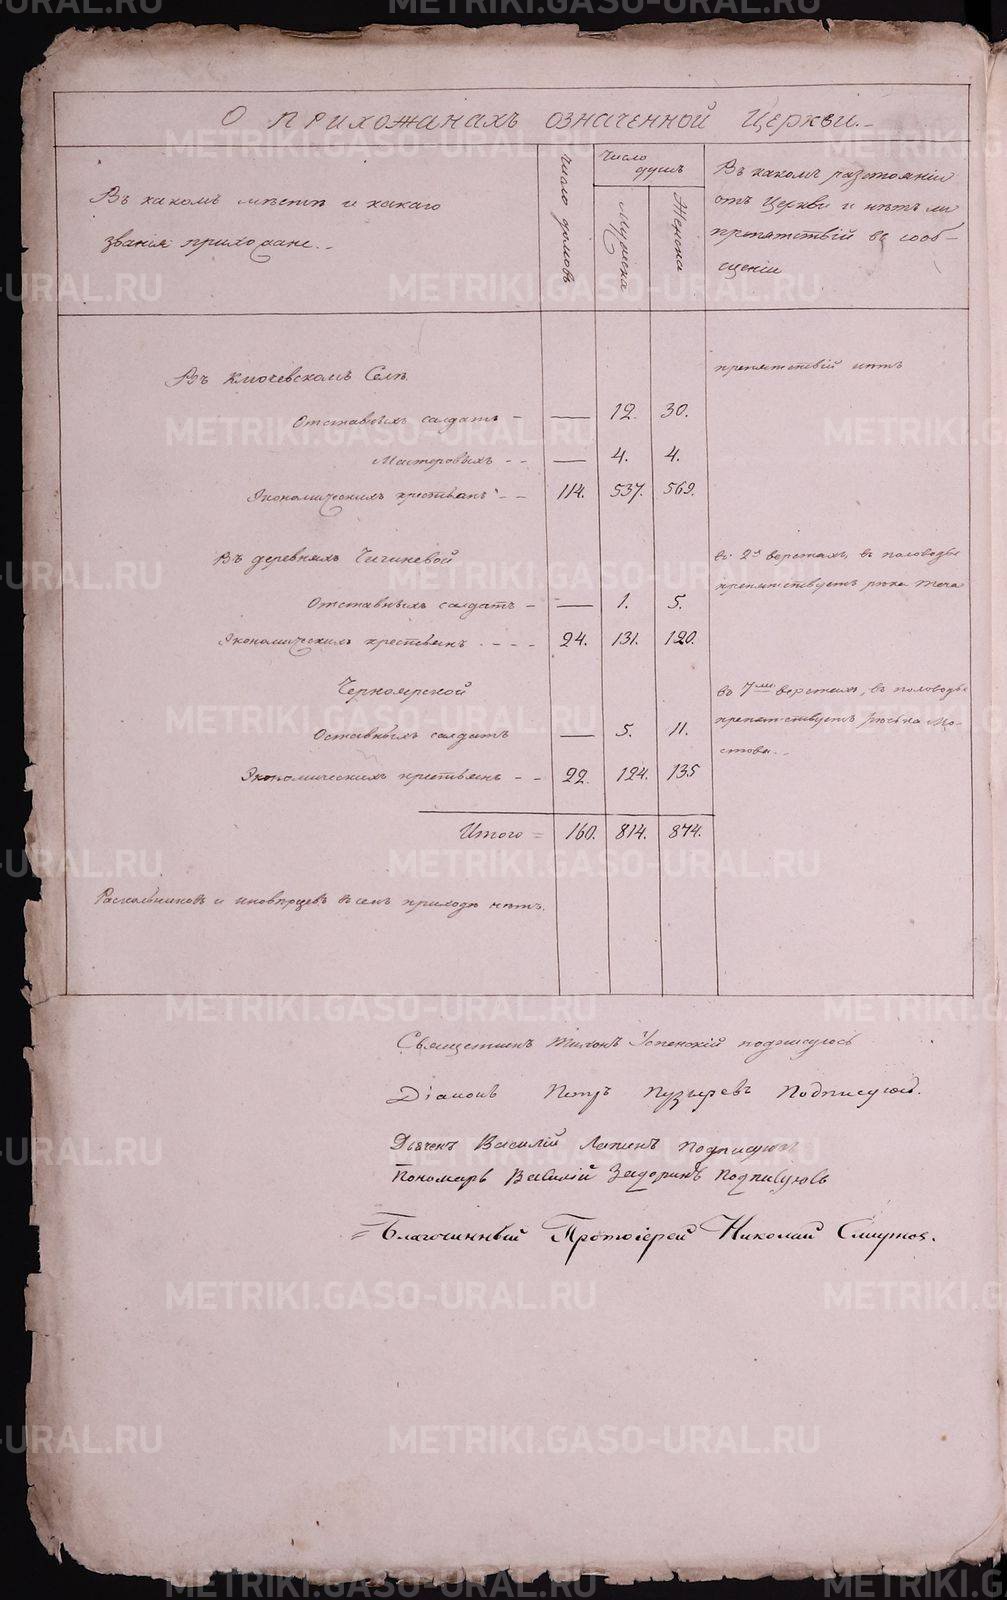 О прихожанахъ означенной Церкви.
Въ какомъ мѣстѣ и какаго
званія прихожане.
число домовъ
Число
душъ
Мужеска
Женска
Въ какомъ разстояніи
отъ Церкви и нѣтъ ли
препятствій въ сооб-
щеніи
Въ Ключевскомъ Селѣ.
препятствій нѣтъ
Отставныхъ салдатъ - — 12. 30.
Мастеровыхъ - - — 4. 4.
Экономическихъ крестьянъ - - 114. 537. 569.
Въ деревняхъ Чигиневой
въ 2хъ верстахъ, въ половодье
препятствуетъ рѣка Теча
Отставныхъ салдатъ - — 1. 5.
Экономическихъ крестьянъ - - - - 24. 131. 120.
Черноярской
въ 7ми верстахъ, въ половодье
препятствуетъ рѣчка Мо-
стовка.
Оставныхъ салдатъ — 5. 11.
Экономическихъ крестьянъ - - 22. 124. 135
Итого = 160. 814. 874.
Раскольниковъ и иновѣрцевъ въ семъ приходѣ нѣтъ.
Священникъ Тихонъ Успенскій подписуюсь
Діаконъ Петръ Пузыревъ Подписуюсь.
Дьячекъ Василій Лапинъ подписуюсь
Пономарь Василій Задоринъ Подписуюсь
Благочинный Протоіерей Николай Смирнов.
METRIKI.GASO-URAL.RU